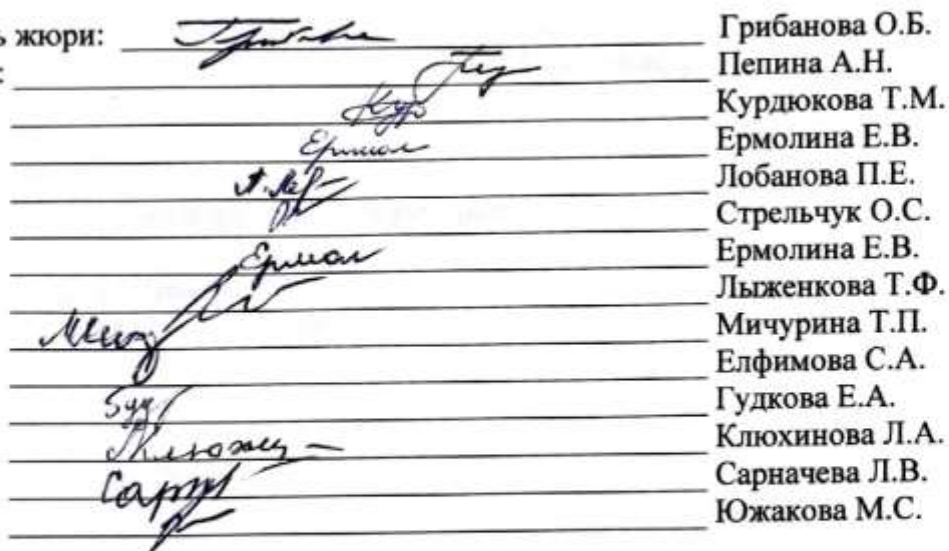 ь жюри: Грибанова О.Б.
: Пепина А.Н.
Курдюкова Т.М.
Ермол Ермолина Е.В.
Лобанова П.Е.
Стрельчук О.С.
Ермол Ермолина Е.В.
Лыженкова Т.Ф.
Мичурина Т.П.
Елфимова С.А.
Гудкова Е.А.
Клюхинова Л.А.
Сарначева Л.В.
Южакова М.С.